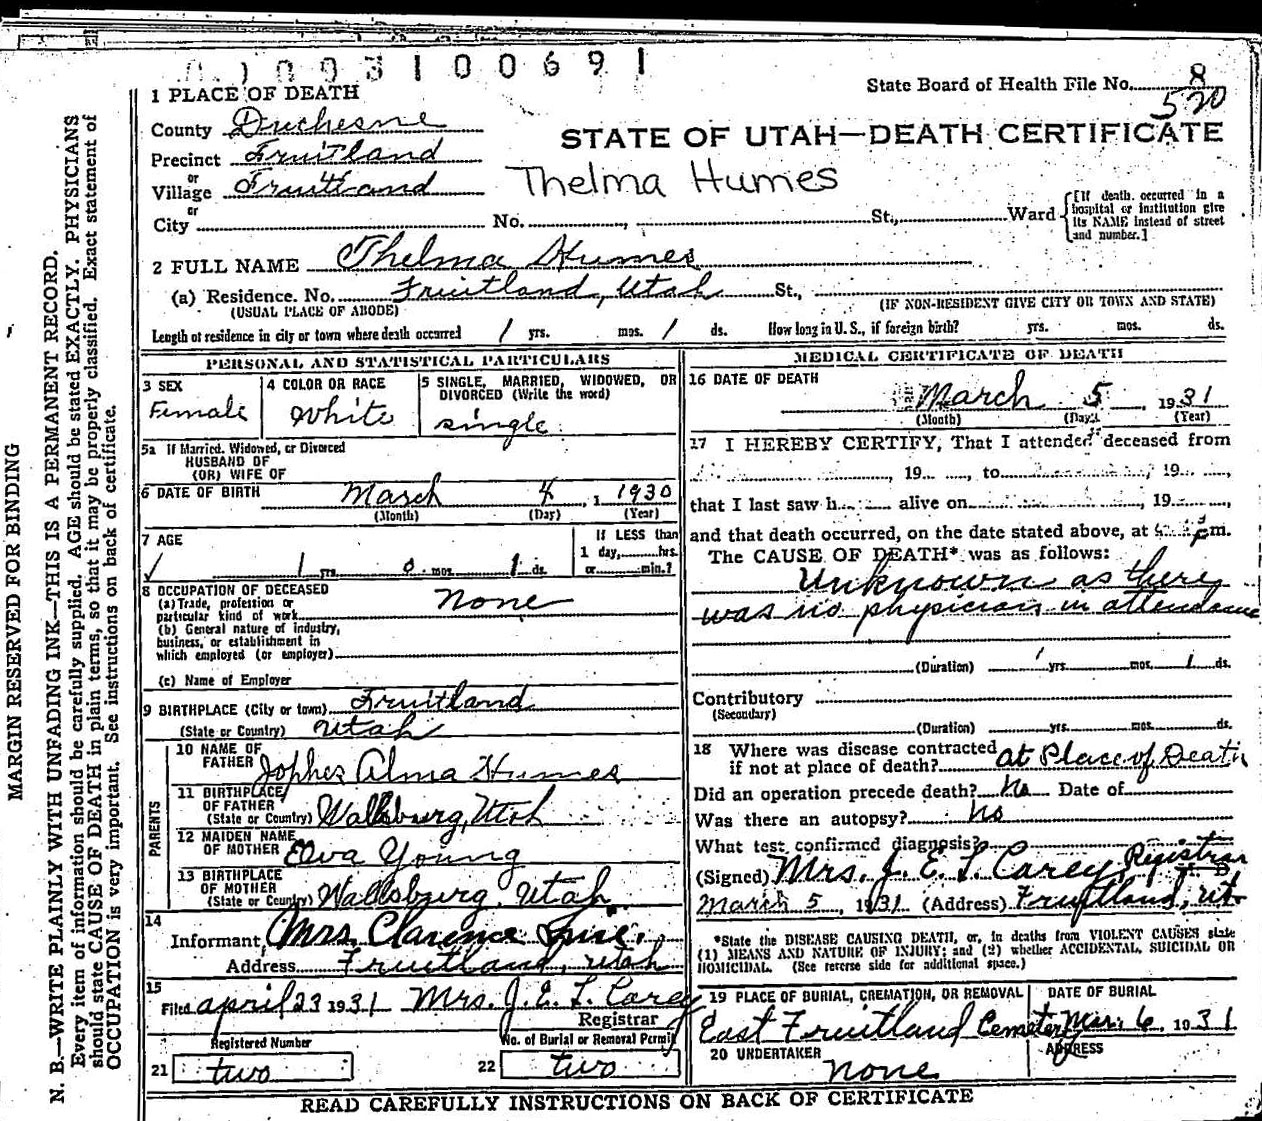 0 0 9 3 1 0 0 6 9 1
State Board of Health File No. 8
520
1 PLACE OF DEATH
County Duchesne
STATE OF UTAH—DEATH CERTIFICATE
Precinct Fruitland
or
Village Fruitland
Thelma Humes
or
City No. , St., Ward
[If death occurred in a hospital or institution give its NAME instead of street and number.]
2 FULL NAME Thelma Humes
(a) Residence. No. Fruitland, Utah St.,
(USUAL PLACE OF ABODE) (IF NON-RESIDENT GIVE CITY OR TOWN AND STATE)
Length of residence in city or town where death occurred 1 yrs. mos. 1 ds. How long in U. S., if foreign birth? yrs. mos. ds.
PERSONAL AND STATISTICAL PARTICULARS
3 SEX
Female
4 COLOR OR RACE
White
5 SINGLE, MARRIED, WIDOWED, OR DIVORCED (Write the word)
single
5a If Married, Widowed, or Divorced
HUSBAND OF
(OR) WIFE OF
6 DATE OF BIRTH March 4, 1 1930
(Month) (Day) (Year)
7 AGE
1 yrs. 0 mos. 1 ds.
If LESS than
1 day, hrs.
or min.?
8 OCCUPATION OF DECEASED
(a) Trade, profession or
particular kind of work none
(b) General nature of industry,
business, or establishment in
which employed (or employer)
(c) Name of Employer
9 BIRTHPLACE (City or town) Fruitland
(State or Country) Utah
PARENTS
10 NAME OF
FATHER Jophes Alma Humes
11 BIRTHPLACE
OF FATHER
(State or Country) Wallsburg, Utah
12 MAIDEN NAME
OF MOTHER Elva Young
13 BIRTHPLACE
OF MOTHER
(State or Country) Wallsburg, Utah
14
Informant Mrs. Clarence
Address Fruitland, Utah
15
Filed april 23 1931 Mrs. J. E. L. Carey
Registrar
Registered Number No. of Burial or Removal Permit
21 two 22 two
MEDICAL CERTIFICATE OF DEATH
16 DATE OF DEATH
March 5, 1931
(Month) (Day) (Year)
17 I HEREBY CERTIFY, That I attended deceased from
, 19 , to , 19 ,
that I last saw h alive on , 19 ,
and that death occurred, on the date stated above, at p.m.
The CAUSE OF DEATH* was as follows:
Unknown as there
was no physician in attendance
(Duration) 1 yrs. mos. 1 ds.
Contributory
(Secondary)
(Duration) yrs. mos. ds.
18 Where was disease contracted
if not at place of death? at Place of Death
Did an operation precede death? No Date of
Was there an autopsy? No
What test confirmed diagnosis?
(Signed) Mrs. J. E. L. Carey, Registrar
March 5, 1931 (Address) Fruitland, Ut.
*State the DISEASE CAUSING DEATH, or, in deaths from VIOLENT CAUSES state
(1) MEANS AND NATURE OF INJURY; and (2) whether ACCIDENTAL, SUICIDAL OR
HOMICIDAL. (See reverse side for additional space.)
19 PLACE OF BURIAL, CREMATION, OR REMOVAL
East Fruitland Cemetery
DATE OF BURIAL
Mar. 6, 1931
20 UNDERTAKER
none
ADDRESS
READ CAREFULLY INSTRUCTIONS ON BACK OF CERTIFICATE
MARGIN RESERVED FOR BINDING
N. B.—WRITE PLAINLY WITH UNFADING INK—THIS IS A PERMANENT RECORD.
Every item of information should be carefully supplied. AGE should be stated EXACTLY. PHYSICIANS
should state CAUSE OF DEATH in plain terms, so that it may be properly classified. Exact statement of
OCCUPATION is very important. See instructions on back of certificate.